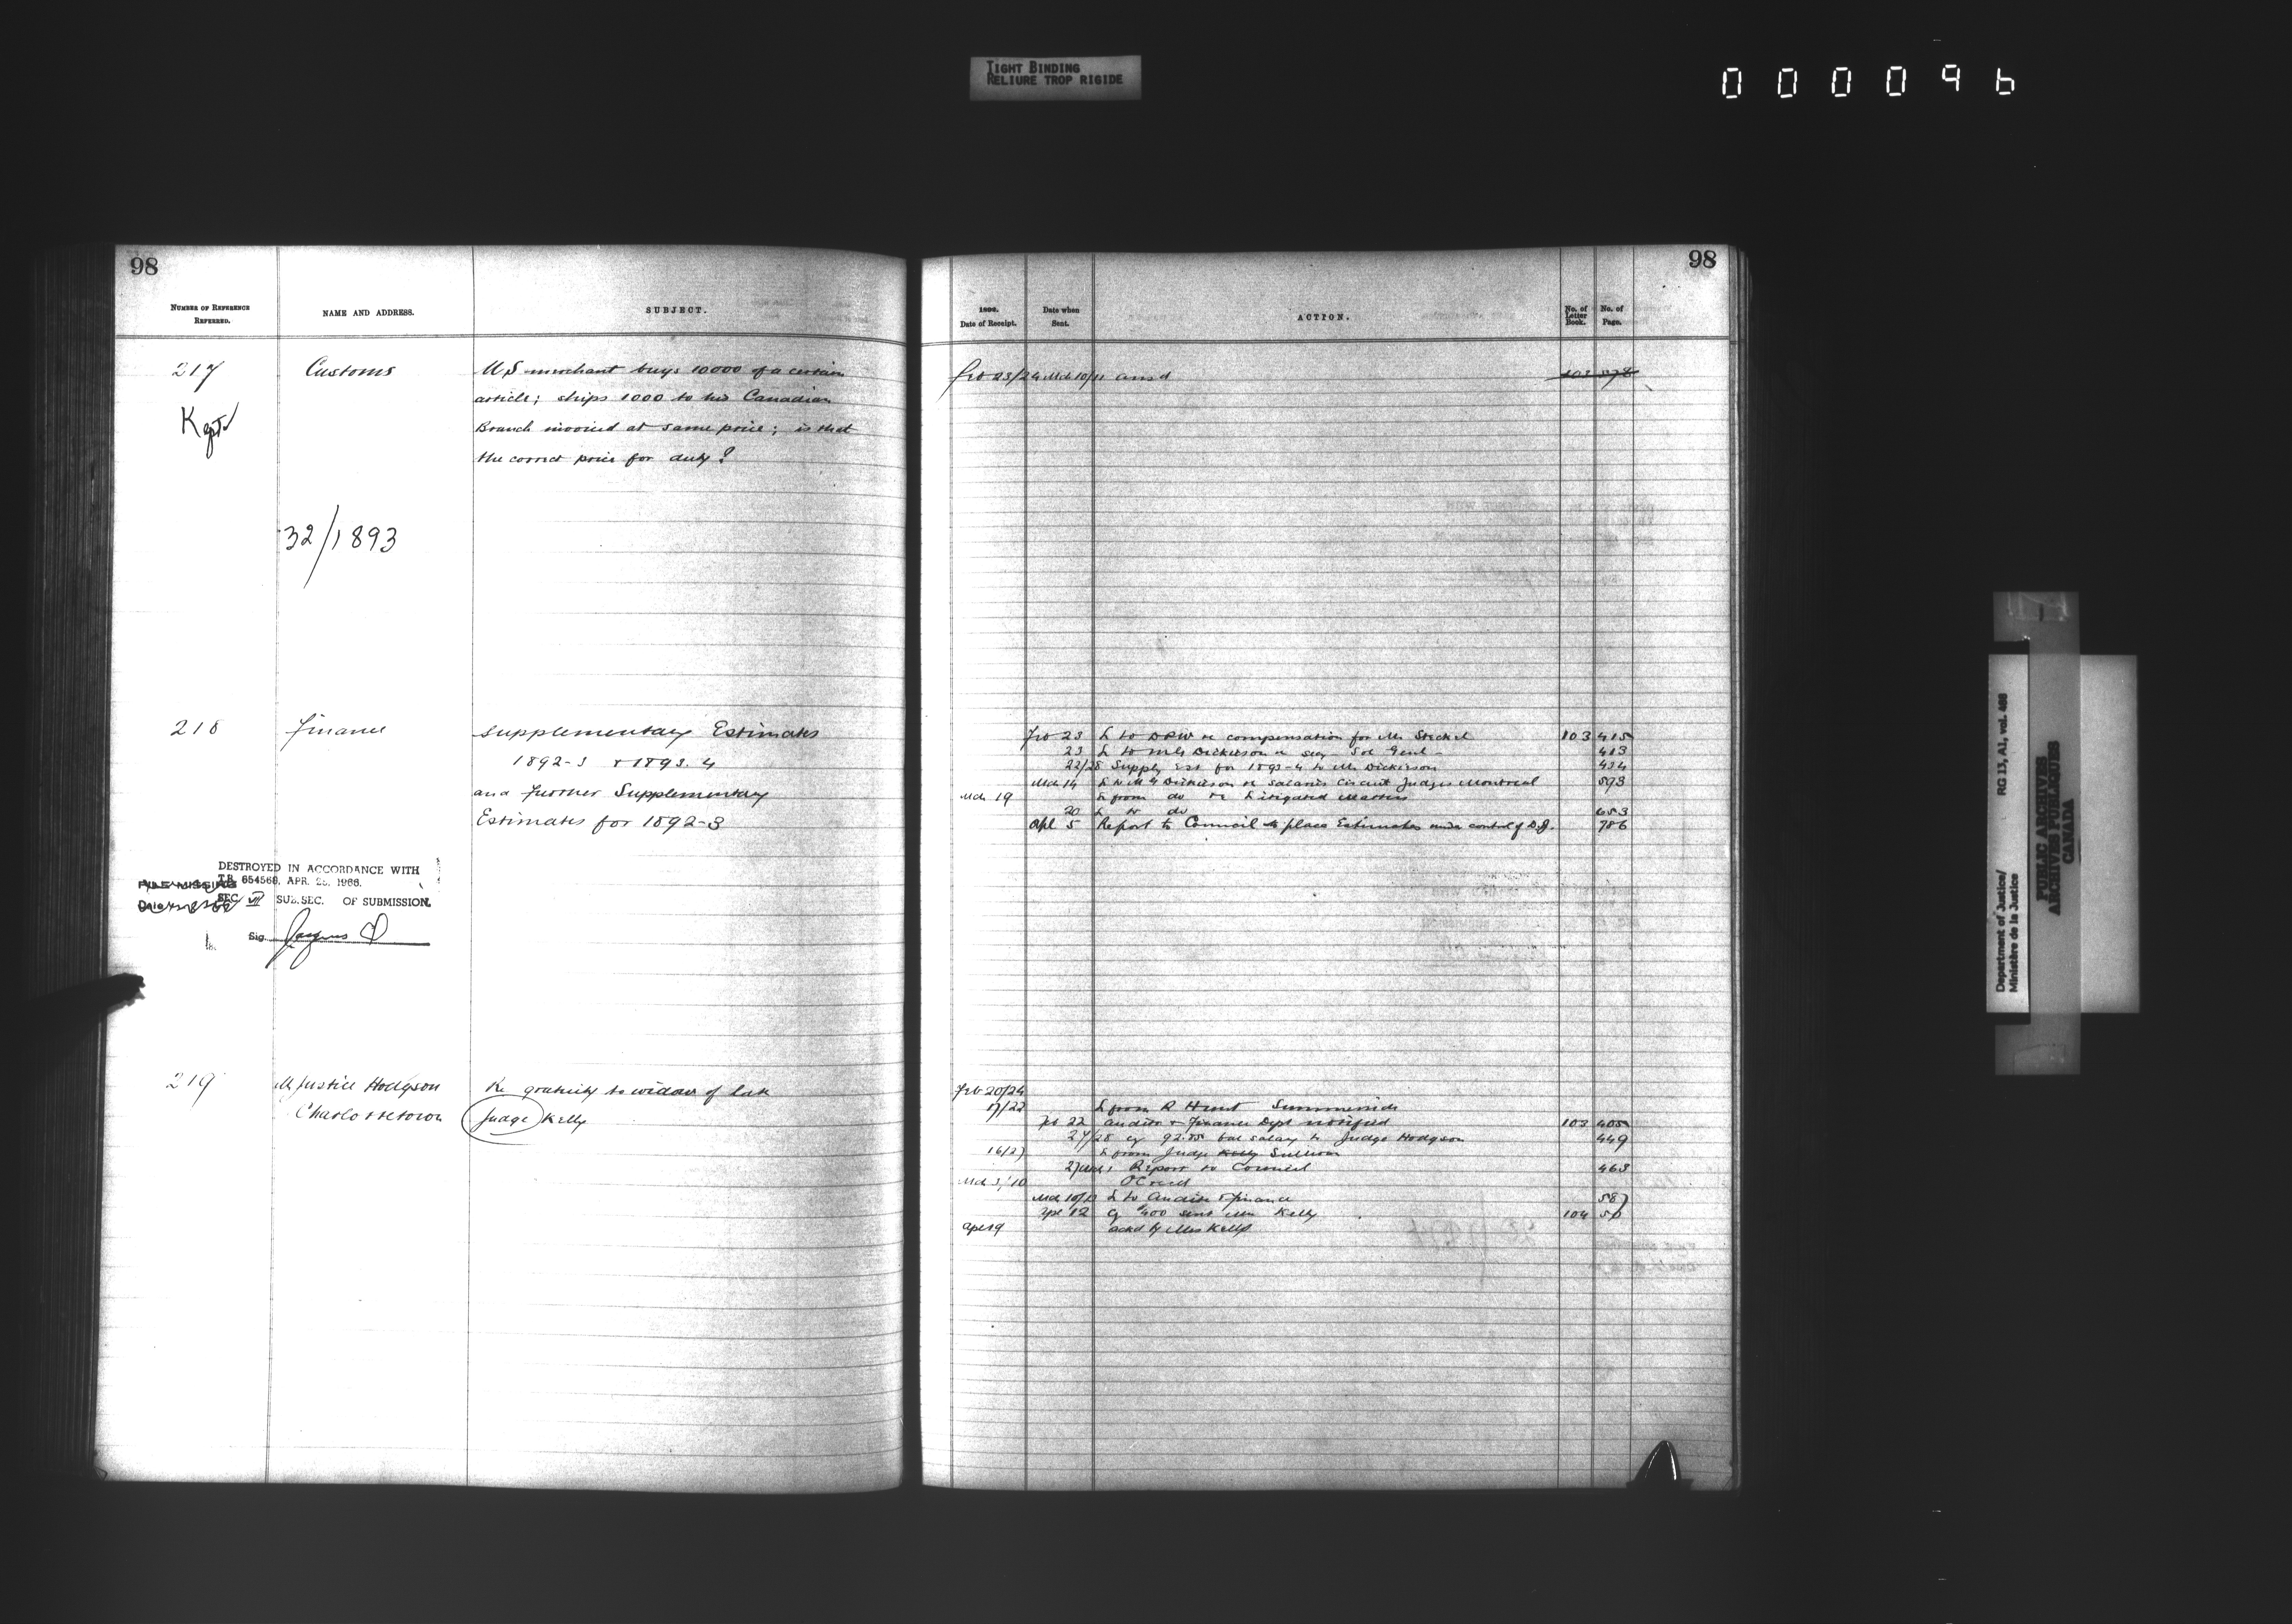 TIGHT BINDING
RELIURE TROP RIGIDE
000096
98
NUMBER OF REFERENCE REFERRED.
NAME AND ADDRESS.
SUBJECT.
217
Customs
U.S merchant buys 10000 of a certain
article; ships 1000 to his Canadian
Branch invoiced at same price; is that
the correct price for duty?
Kept
32/1893
218
Finance
Supplementary Estimates
1892-3 & 1893.4
and further Supplementary
Estimates for 1892-3
DESTROYED IN ACCORDANCE WITH
T.B. 654569, APR. 25, 1966.
FILE MISSING
SEC. VII SUB.SEC. OF SUBMISSION.
Date
Sig. Jacques
219
M Justice Hodgson
Charlottetown
Re gratuity to widow of late
Judge Kelly
98
Date of Receipt.
Date when Sent.
ACTION.
No. of Letter Book.
No. of Page.
Feb 23/24 Mch 10/11 ansd 103 578
Feb 23 L to DPW re compensation for Mr Steckel 103 415
23 L to Mr Dickieson re Sol Genl 413
22/28 Supply Est for 1893-4 to Mr Dickieson 434
Mch 14 L to Mr Dickieson re salaries Circuit Judges Montreal 593
Mch 19 L from do re Litigated Matters
20 L to do 653
Apl 5 Report to Council to place Estimates under control of D.J. 786
Feb 20/24
17/22 L from R Hunt Summerside
Feb 22 Auditor & Finance Dept notified 103 405
27/28 cq 92.85 bal salary to Judge Hodgson 449
16/27 L from Judge Kelly Sullivan
Report to Council 463
Mch 3/10 OC recd
Mch 10/13 L to Auditor & Finance 587
Apl 12 cq $400 sent Mrs Kelly 104 56
Apl 19 ackd by Mrs Kelly
Department of Justice/
Ministère de la Justice
RG 13, A1, vol. 486
PUBLIC ARCHIVES
ARCHIVES PUBLIQUES
CANADA